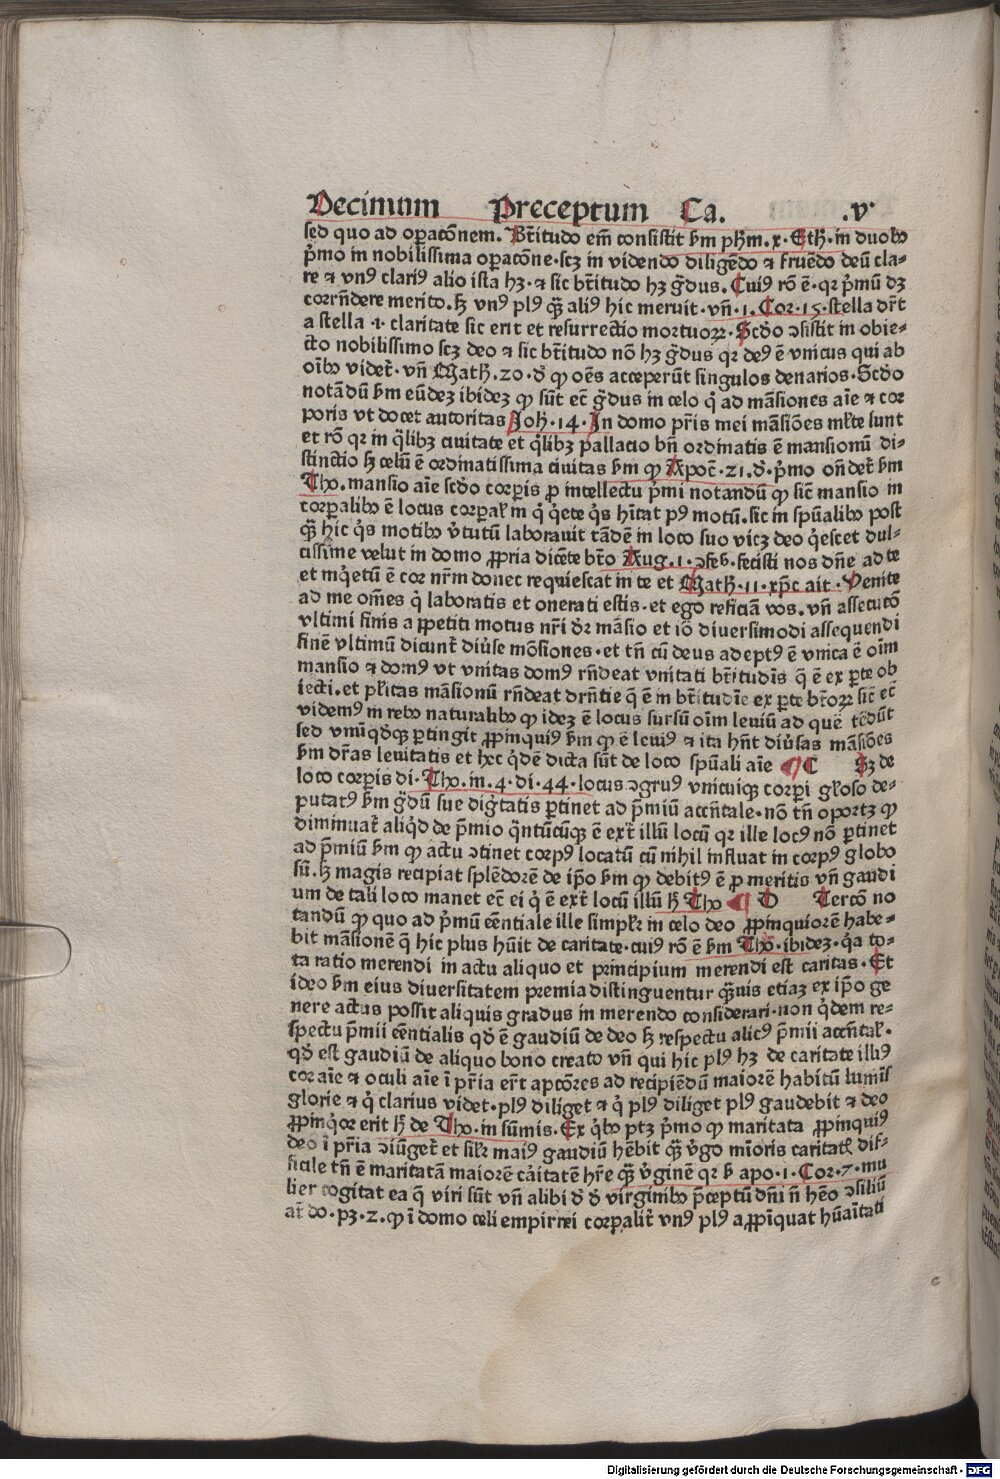 Decimum Preceptum Ca. .v.
sed quo ad oꝑacõnem. Btĩtudo em̃ consistit ẜm pħm.x.Etħ.in duobꝰ
pͥmo in nobilissima oꝑacõne.scꝫ in videndo diligẽdo ⁊ fruẽdo deũ cla⸗
re ⁊ vnꝰ clariꝰ alio ista hꝫ.⁊ sic btĩtudo hꝫ gͣdus. Cuiꝰ rõ ẽ.qꝛ pͥmũ dꝫ
corrñdere merito.ſꝫ vnꝰ plꝰ qͣꝫ aliꝰ hic meruit.vñ.1.Cor.15.stella dr̃t
a stella .i. claritate sic erit et resurrectio mortuoꝝ. Scd̾o ↄsistit in obie⸗
cto nobilissimo scꝫ deo ⁊ sic btĩtudo nõ hꝫ gͣdus qꝛ deꝰ ẽ vnicus qui ab
oĩbꝰ videt̃. vñ Matħ.20.d̾ ꝙ oẽs acceperũt singulos denarios.Scd̾o
notãdũ ẜm eũdeꝫ ibideꝫ ꝙ sũt ec̃ gͣdus in celo qͦ ad mãsiones aĩe ⁊ cor
poris vt docet autoritas Joħ.14.In domo pr̃is mei mãsiões ml̃te sunt
et rõ qꝛ in qͣlibꝫ ciuitate et qͦlibꝫ pallacio bñ ordinatis ẽ mansionũ di⸗
stinctio ſꝫ celũ ẽ ordinatissima ciuitas ẜm ꝙ Apoc̃.21.d̾.pͥmo oñdet̃ ẜm
Tho.mansio aĩe scd̾o corꝑis ꝓ intellectu pͥmi notandũ ꝙ sic̃ mansio in
corꝑalibꝰ ẽ locus corꝑal̃ in qͦ qͥete qͥs hĩtat pꝰ motũ.sic in spũalibꝰ post
qͣꝫ hic qͥs motibꝰ v̾tutũ laborauit tãdẽ in loco suo vicꝫ deo qͥescet dul⸗
cissime velut in domo ꝓpria dicẽte bt̃o Aug.1.ↄfeſ.fecisti nos dñe ad te
et inqͥetũ ẽ cor nr̃m donec requiescat in te et Matħ.11.xp̃c ait.Venite
ad me om̃es qͥ laboratis et onerati estis.et ego reficiã vos.vñ assecutõ
vltimi finis a ꝑpetiti motus nr̃i dr̃ mãsio et iõ diuersimodi assequendi
finẽ vltimũ dicunt̃ diu̾se mõsiones.et tñ cũ deus adeptꝰ ẽ vnica ẽ oĩm
mansio ⁊ domꝰ vt vnitas domꝰ rñdeat vnitati btĩtudĩs q̃ ẽ ex ꝑte ob
iecti.et pl̃itas mãsionũ rñdeat drñtie q̃ ẽ in btĩtudĩe ex ꝑte bt̃oꝝ sic̃ ec̃
videmꝰ in rebꝰ naturalibꝰ ꝙ ideꝫ ẽ locus sursũ oĩm leuiũ ad quẽ tẽdũt
sed vnũqd̾qꝫ ꝑtingit ꝓpinquiꝰ ẜm ꝙ ẽ leuiꝰ ⁊ ita hñt diu̾sas mãsiões
ẜm dr̃as leuitatis et hec qͥdẽ dicta sũt de loco spũali aĩe ¶ C Sꝫ de
loco corꝑis di.Tho.in.4.di.44.locus ↄgruꝰ vnicuiqꝫ corꝑi gl̃oso de⸗
putatꝰ ẜm gͣdũ sue digͥtatis ꝑtinet ad pͥmiũ accñtale.nõ tñ oportꝫ ꝙ
diminuat̃ aliqͥd de pͥmio qͣntũcũqꝫ ẽ ext̃ illũ locũ qꝛ ille locꝰ nõ ꝑtinet
ad pͥmiũ ẜm ꝙ actu ↄtinet corpꝰ locatũ cũ nihil influat in corpꝰ globo
sũ.ſꝫ magis recipiat splẽdorẽ de ip̃o ẜm ꝙ debitꝰ ẽ ꝓ meritis vñ gaudi
um de tali loco manet ec̃ ei qͥ ẽ ext̃ locũ illũ ħ Tho ¶ D Tercõ no
tandũ ꝙ quo ad pͥmũ eẽntiale ille simpl̃r in celo deo ꝓpinquiorẽ habe⸗
bit mãsionẽ qͥ hic plus hũit de caritate.cuiꝰ rõ ẽ ẜm Tho.ibideꝫ.qͥa to⸗
ta ratio merendi in actu aliquo et principium merendi est caritas.Et
ideo ẜm eius diuersitatem premia distinguentur qͣꝫuis etiaꝫ ex ip̃o ge
nere actus possit aliquis gradus in merendo considerari.non qͥdem re⸗
spectu pͥmii eẽntialis qd̾ ẽ gaudiũ de deo ſꝫ respectu alicꝰ pͥmii accñtal̃.
qd̾ est gaudiũ de aliquo bono creato vñ qui hic plꝰ hꝫ de caritate illiꝰ
cor aĩe ⁊ oculi aĩe ĩ pr̃ia er̃t apcõres ad recipiẽdũ maiorẽ habitũ lumĩs
glorie ⁊ qͥ clarius videt.plꝰ diliget ⁊ qͥ plꝰ diliget plꝰ gaudebit ⁊ deo
ꝓpinqͥor erit ħ de Tho.in sũmis.Ex qͥbꝰ ptꝫ pͥmo ꝙ maritata ꝓpinquiꝰ
deo ĩ pr̃ia ↄiũget̃ et sil̃r maiꝰ gaudiũ hẽbit qͣꝫ v̾go mĩoris caritatꝭ dif⸗
ficile tñ ẽ maritatã maiorẽ cãitatẽ hr̃e qͣꝫ v̾ginẽ qꝛ ẜ apo.1.Cor.7.mu
lier cogitat ea q̃ viri sũt vñ alibi d̾ d̾ virginibꝰ pͥceptũ dñi ñ hẽo ↄsiliũ
at̃ do.pꝫ.2.ꝙ ĩ domo celi empirrei corꝑalit̃ vnꝰ plꝰ aꝓpĩquat hũaĩtati